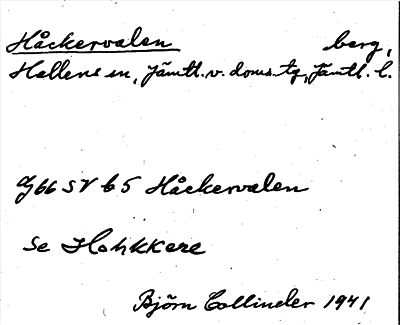 Håckervalen berg,
Hallens sn, Jämtl. v. doms. tg, Jämtl. l.
J66 SV b 5 Håckervalen
Se Hohkkere
Björn Collinder 1941